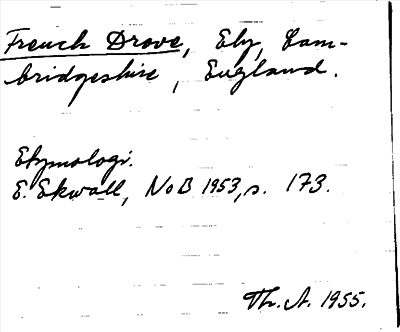 French Drove, Ely, Cam-
bridgeshire, England.
Etymologi.
E. Ekwall, NoB 1953, s. 173.
Th. A. 1955.